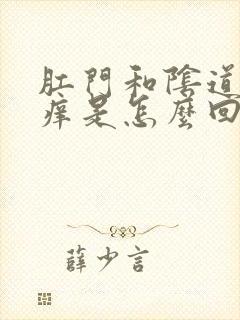 肛門和陰道
痒是怎麼回
薛少言